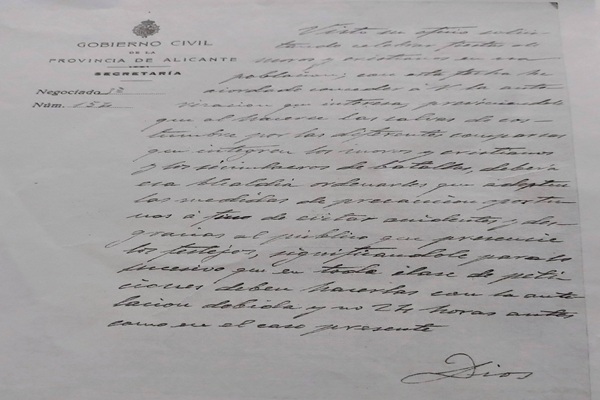 GOBIERNO CIVIL
DE LA
PROVINCIA DE ALICANTE
SECRETARÍA
Negociado 3º
Núm. 152
Visto su oficio solici
tando celebrar fiestas de
moros y cristianos en esa
poblacion; con esta fecha he
acordado conceder á V. la auto
rizacion que interesa, previniendole
que al hacerse las salvas de cos-
tumbre por las diferentes comparsas
que integren los moros y cristianos
y los simulacros de batallas, deberá
esa Alcaldia ordenarles que adopten
las medidas de precaucion oportu-
nas á fin de evitar accidentes y des-
gracias al público que presencie
los festejos, significandole para lo
sucesivo que en toda clase de peti-
ciones deben hacerlas con la ante
lacion debida y no 24 horas antes
como en el caso presente
Dios